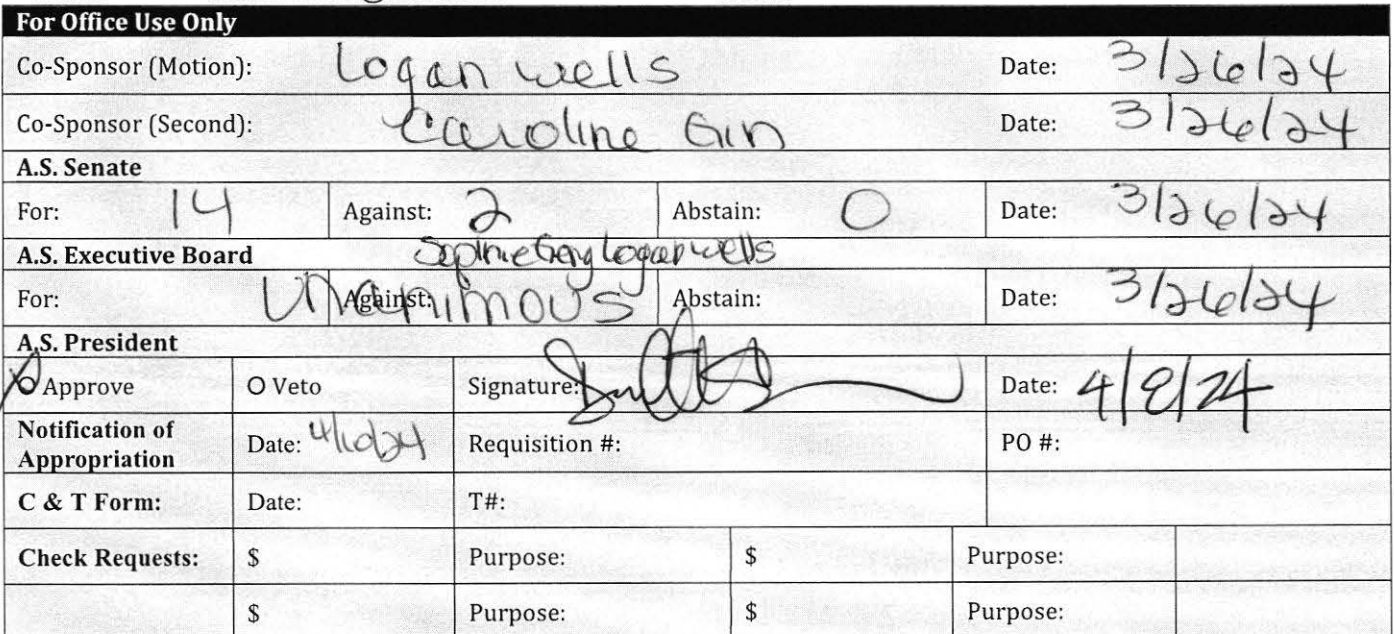 For Office Use Only
Co-Sponsor (Motion): Logan wells Date: 3/26/24
Co-Sponsor (Second): Caroline Date: 3/26/24
A.S. Senate
For: 14 Against: 2 Abstain: 0 Date: 3/26/24
A.S. Executive Board Logan wells
For: Unanimous Against: Abstain: Date: 3/26/24
A.S. President
Approve O Veto Signature: Date: 4/8/24
Notification of Appropriation Date: 4/10/24 Requisition #: PO #:
C & T Form: Date: T#:
Check Requests: $ Purpose: $ Purpose:
$ Purpose: $ Purpose: